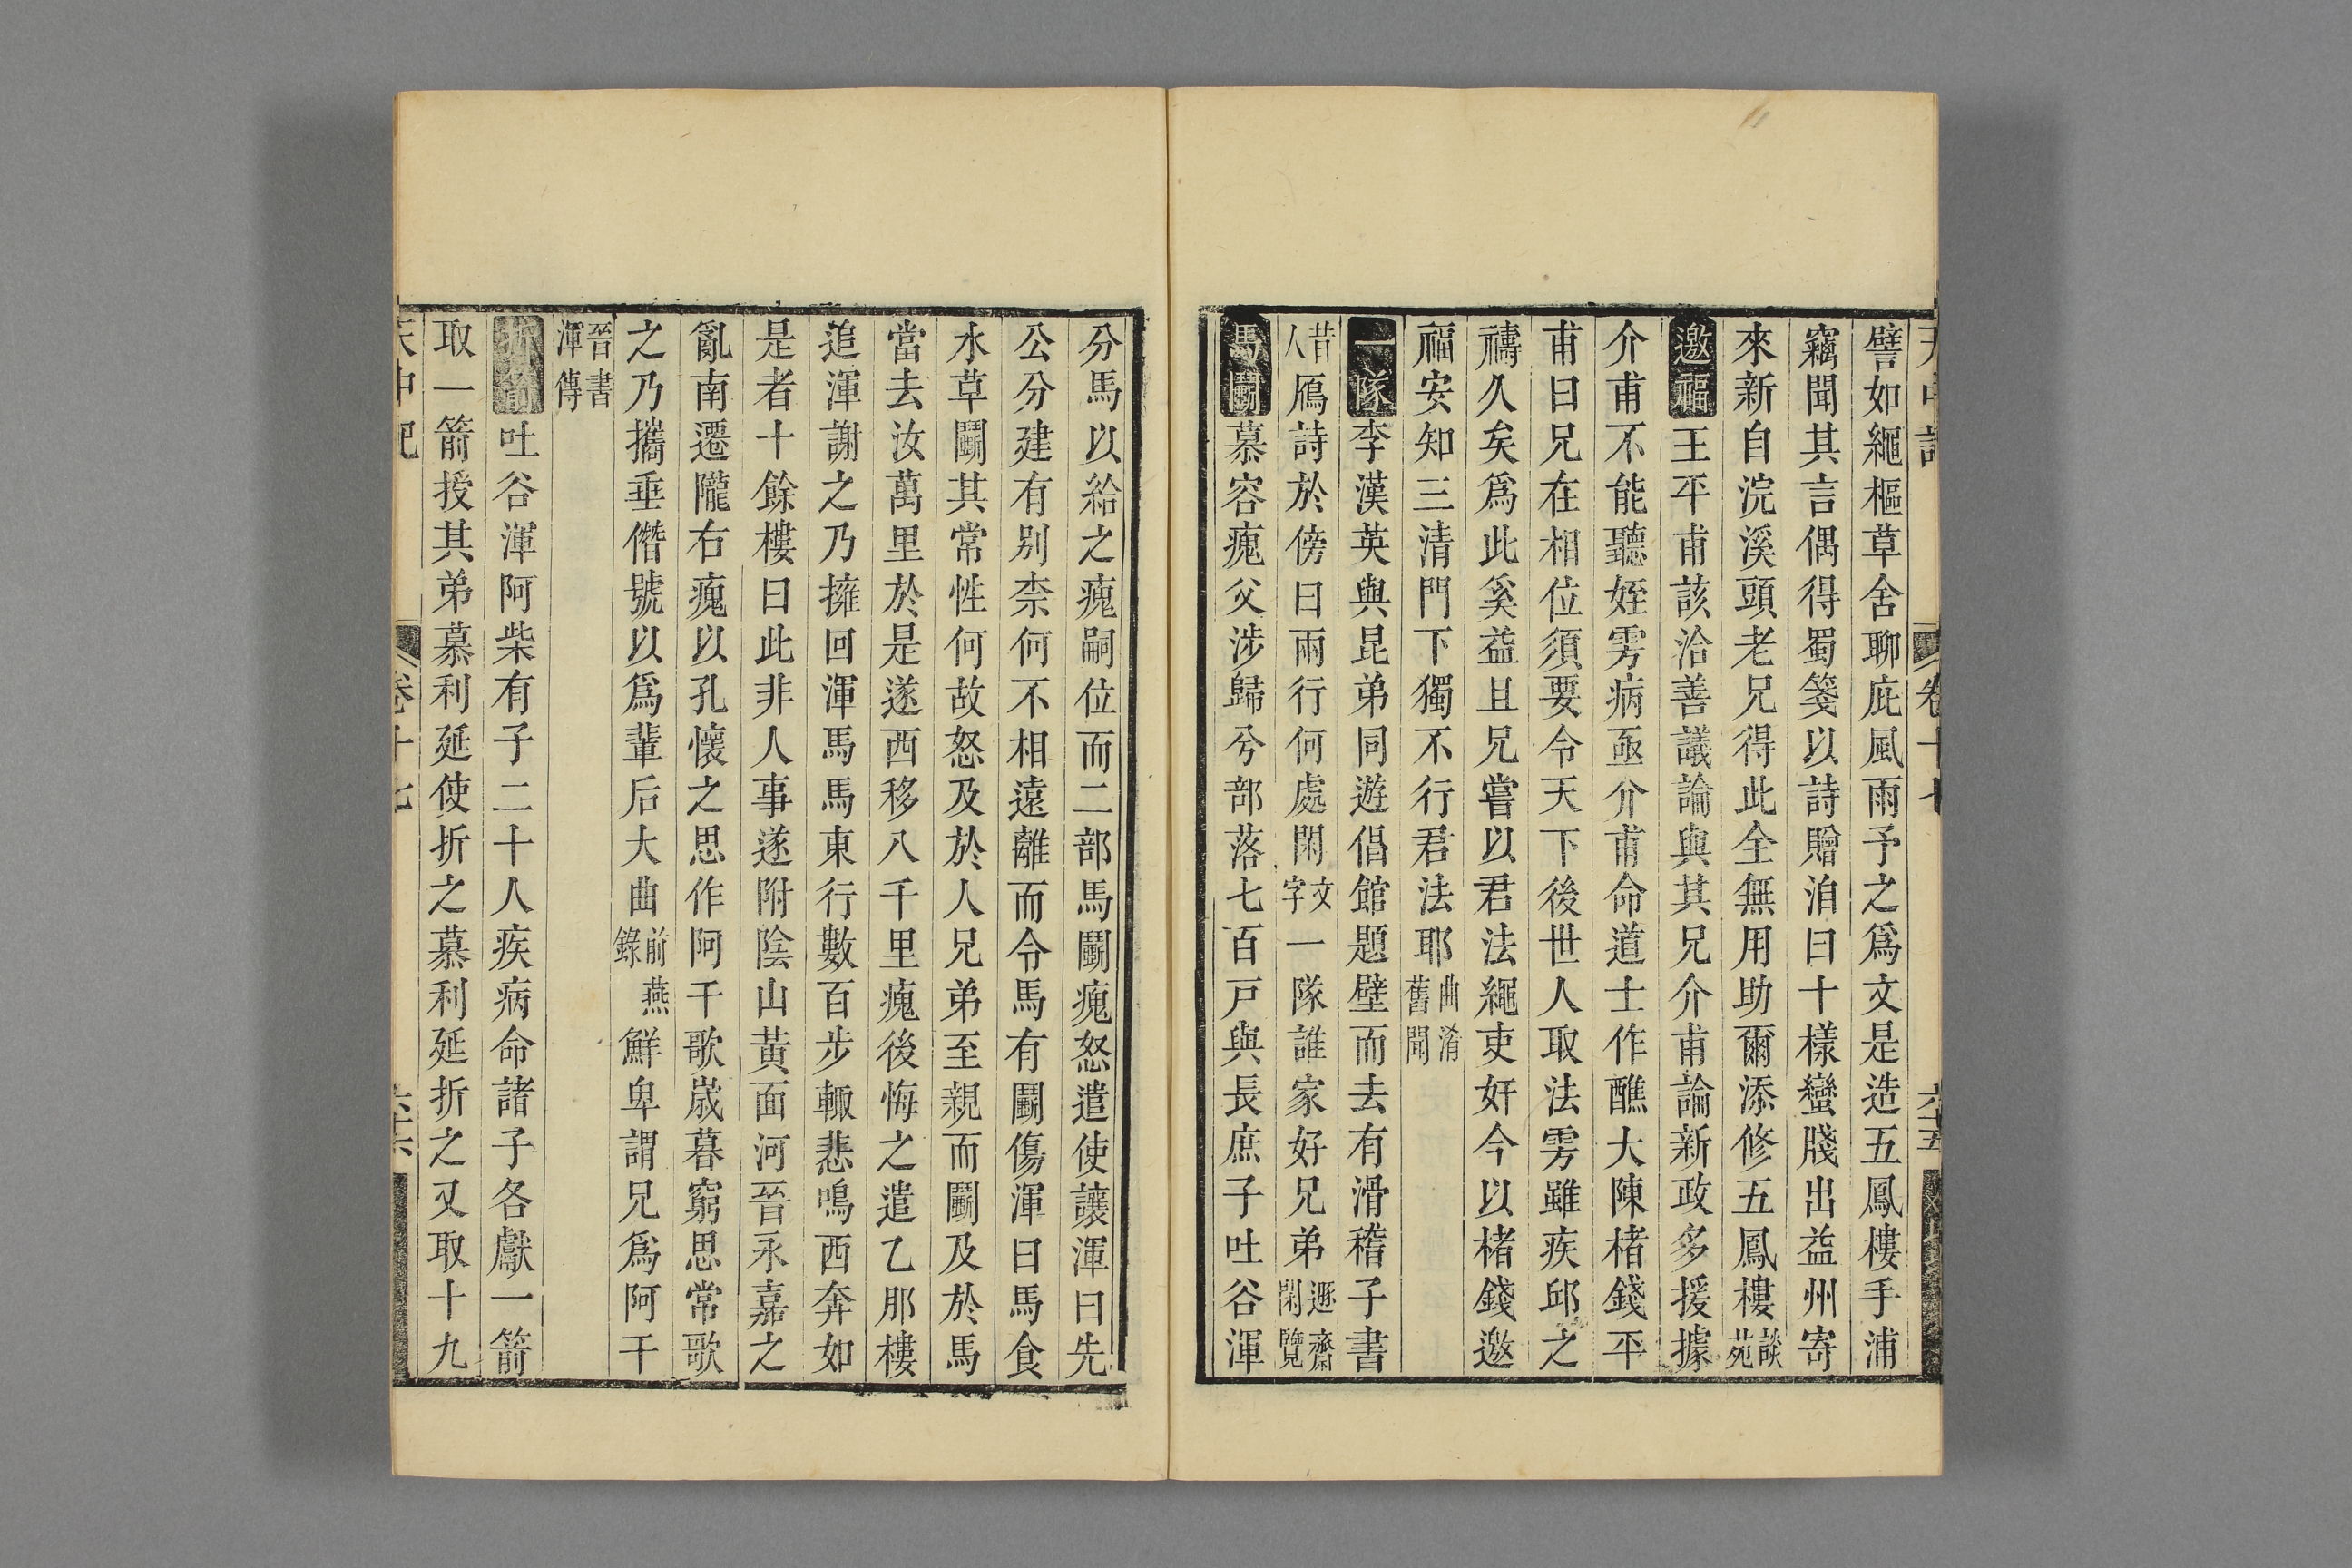 天中記 卷十七 六十五
譬如繩樞草舍聊庇風雨予之爲文是造五鳳樓手浦
竊聞其言偶得蜀箋以詩贈洎曰十樣蠻牋出益州寄
來新自浣溪頭老兄得此全無用助爾添修五鳳樓談苑
邀福王平甫該洽善議論與其兄介甫論新政多援據
介甫不能聽姪雱病亟介甫命道士作醮大陳楮錢平
甫曰兄在相位須要令天下後世人取法雱雖疾邱之
禱久矣爲此奚益且兄嘗以君法繩吏奸今以楮錢邀
福安知三清門下獨不行君法耶曲洧舊聞
一隊李漢英與昆弟同遊倡館題壁而去有滑稽子書
昔人鴈詩於傍曰兩行何處閑文字一隊誰家好兄弟遯齋閑覽
馬鬭慕容廆父涉歸兮部落七百戸與長庶子吐谷渾
分馬以給之廆嗣位而二部馬鬭廆怒遣使讓渾曰先
公分建有别柰何不相遠離而令馬有鬭傷渾曰馬食
水草鬭其常性何故怒及於人兄弟至親而鬭及於馬
當去汝萬里於是遂西移八千里廆後悔之遣乙那樓
追渾謝之乃擁回渾馬馬東行數百步輙悲鳴西奔如
是者十餘樓曰此非人事遂附陰山黃面河晉永嘉之
亂南遷隴右廆以孔懷之思作阿干歌歲暮窮思常歌
之乃攜垂僭號以爲輩后大曲前燕錄鮮卑謂兄爲阿干
晉書渾傳
折箭吐谷渾阿柴有子二十人疾病命諸子各獻一箭
取一箭授其弟慕利延使折之慕利延折之又取十九
天中記 卷十七 六十六